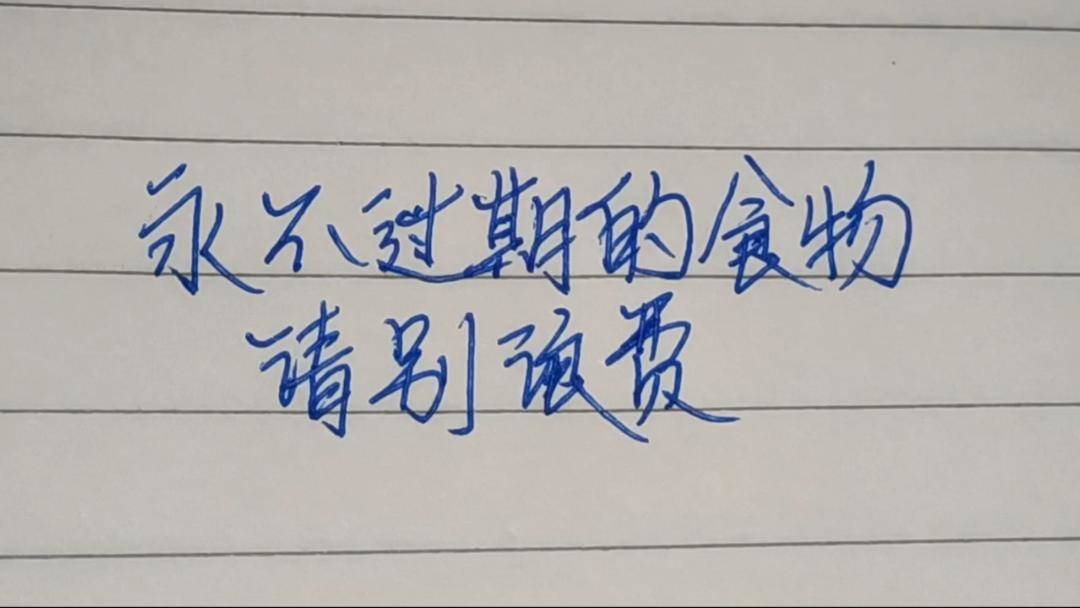 永不过期的食物
请别浪费